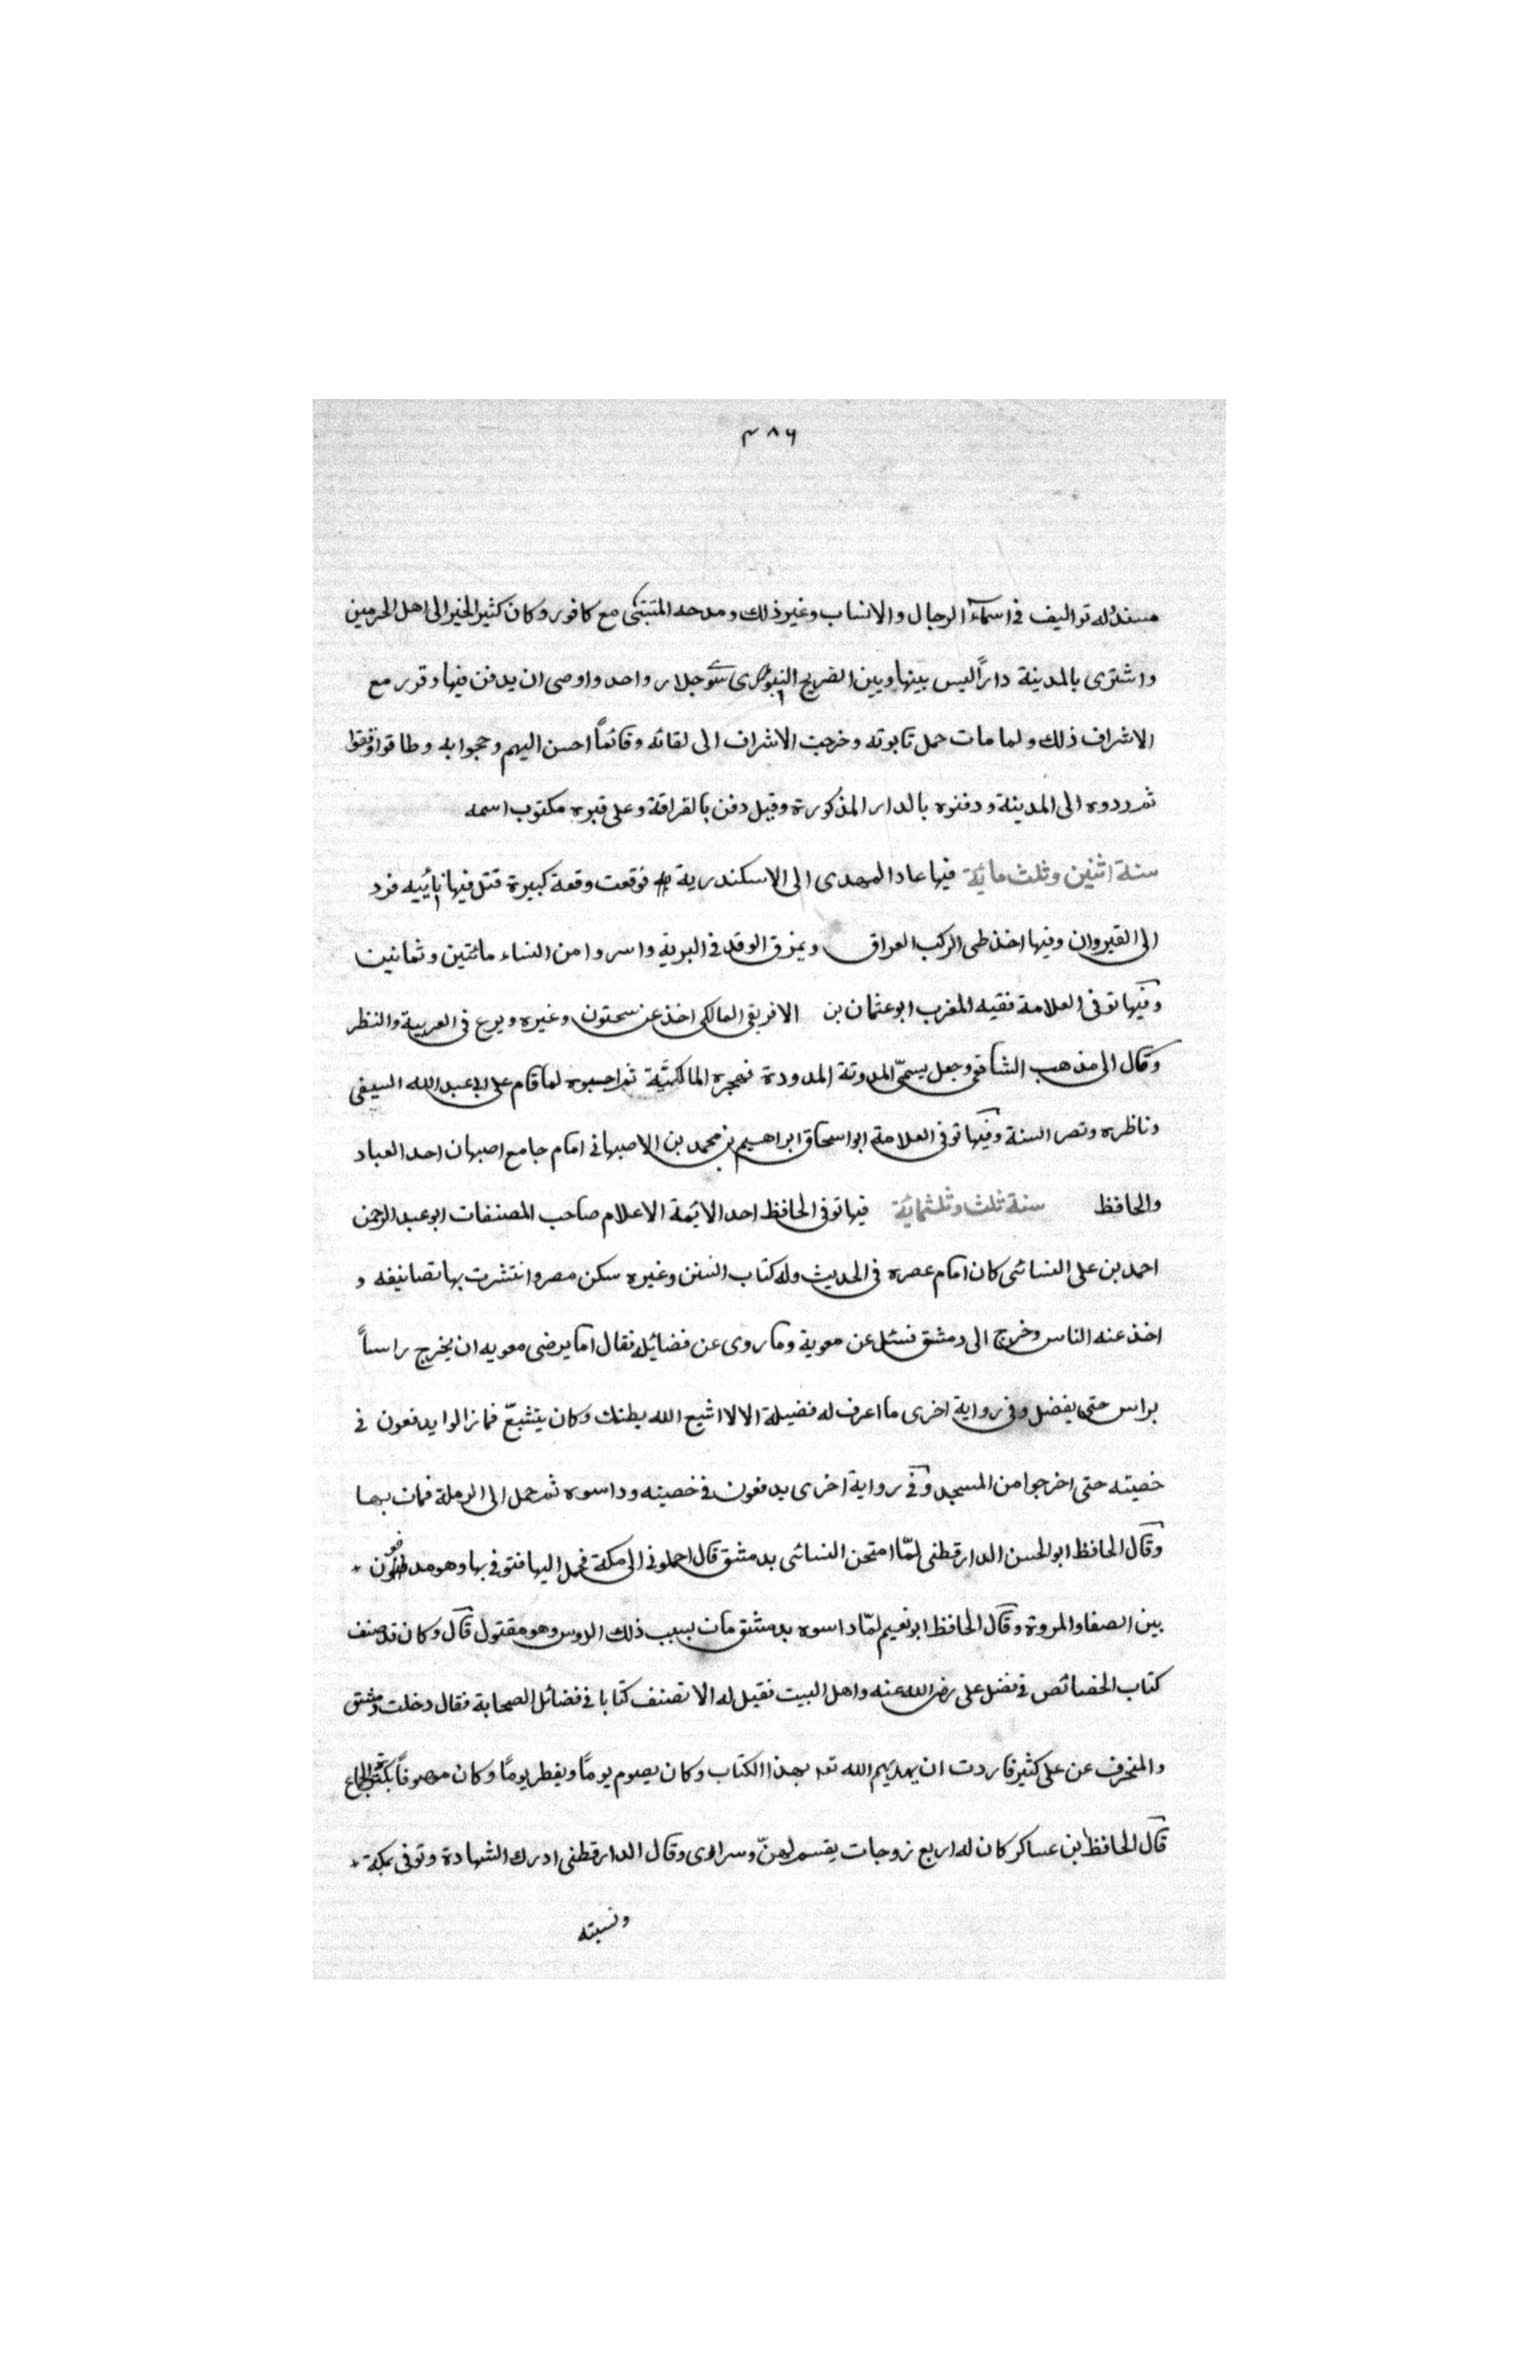 ٣٨٦
مسنداً له تواليف في اسمآء الرجال والانساب وغير ذلك ومدحه المتنبّي مع كافور وكان كثير الخير الى اهل الحرمين
واشترى بالمدينة داراً ليس بينها وبين الضريح النبوي سوى جدار واحد واوصى ان يدفن فيها وقرر مع
الاشراف ذلك ولما مات حمل تابوته وخرجت الاشراف الى لقائه وفائماً احسن اليهم وحجوا به وطافوا ووقفوا
ثم ردوه الى المدينة ودفنوه بالدار المذكورة وقيل دفن بالقرافة وعلى قبره مكتوب اسمه
سنة اثنين وثلث مائة فيها عاد المهدى الى الاسكندرية فوقعت وقعة كبيرة قتل فيها نائبه فرد
الى القيروان وفيها اخذ طى الركب العراقى ويمزق الوفد في البرية واسروا من النساء مائتين وثمانين
وفيها توفى العلامة فقيه المغرب ابو عثمان بن الافريقى المالكى اخذ عن سحنون وغيره وبرع في العربية والنظر
وقال الى مذهب الشافعى وجعل يسمّى المدونة المدودة فهجره المالكيّة ثم احبوه لما قام على ابى عبد الله السيفى
وناظره ونصر السنة وفيها توفى العلامة ابو اسحاق ابراهيم بن محمد بن الاصبهانى امام جامع اصبهان احد العباد
والحافظ سنة ثلث وثلثمائة فيها توفى الحافظ احد الائمة الاعلام صاحب المصنفات ابو عبد الرحمن
احمد بن على النسائى كان امام عصره في الحديث وله كتاب السنن وغيره سكن مصر وانتشرت بها تصانيفه و
اخذ عنه الناس وخرج الى دمشق فسئل عن معوية وما روى عن فضائله فقال اما يرضى معويه ان يخرج راساً
براس حتى يفضل وفي رواية اخرى ما اعرف له فضيلة الا لا اشبع الله بطنك وكان يتشيّع فما زالوا يدفعون في
خصيته حتى اخرجوا من المسجد وفي رواية اخرى يدفعون في خصيته وداسوه ثم حمل الى الرملة فمات بها
وقال الحافظ ابو الحسن الدارقطنى لمّا امتحن النسائى بدمشق قال احملونى الى مكة فحمل اليها فتوفى بها وهو مدفون
بين الصفا والمروة وقال الحافظ ابو نعيم لمّا داسوه بدمشق مات بسبب ذلك الدوس وهو مقتول قال وكان قد صنف
كتاب الخصائص في فضل على رضى الله عنه واهل البيت فقيل له الا تصنف كتابا في فضائل الصحابة فقال دخلت دمشق
والمنحرف عن على كثير فاردت ان يهديهم الله تعه بهذا الكتاب وكان يصوم يومًا ويفطر يومًا وكان موصوفاً بكثرة الجماع
قال الحافظ بن عساكر كان له اربع زوجات يقسم لهنّ وسرارى وقال الدارقطنى ادرك الشهادة وتوفى بمكة
ونسبته